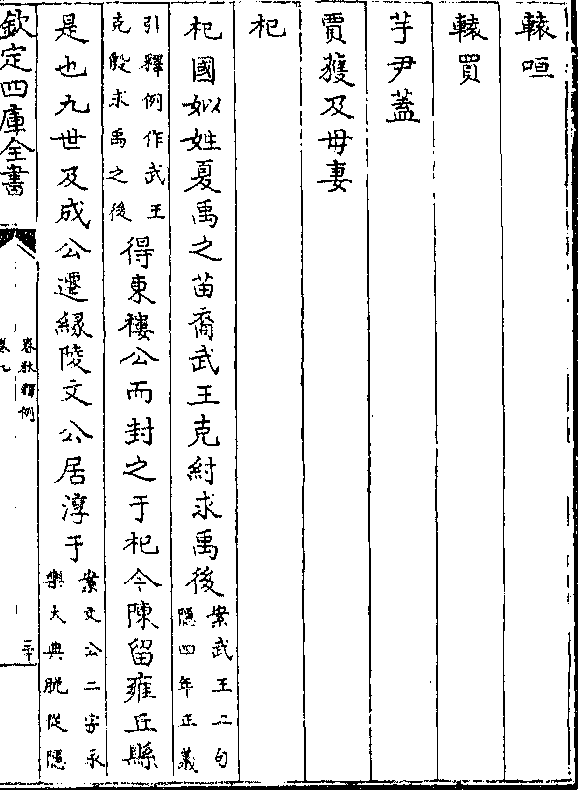 轅咺
轅買
芋尹蓋
賈獲及母妻
杞
杞國姒姓夏禹之苗裔武王克紂求禹後案武王二句隱四年正義
引釋例作武王克殷求禹之後得東樓公而封之于杞今陳留雍丘縣
是也九世及成公遷緣陵文公居淳于案文公二字永樂大典脫從隱
欽定四庫全書
春秋釋例
卷九
三十